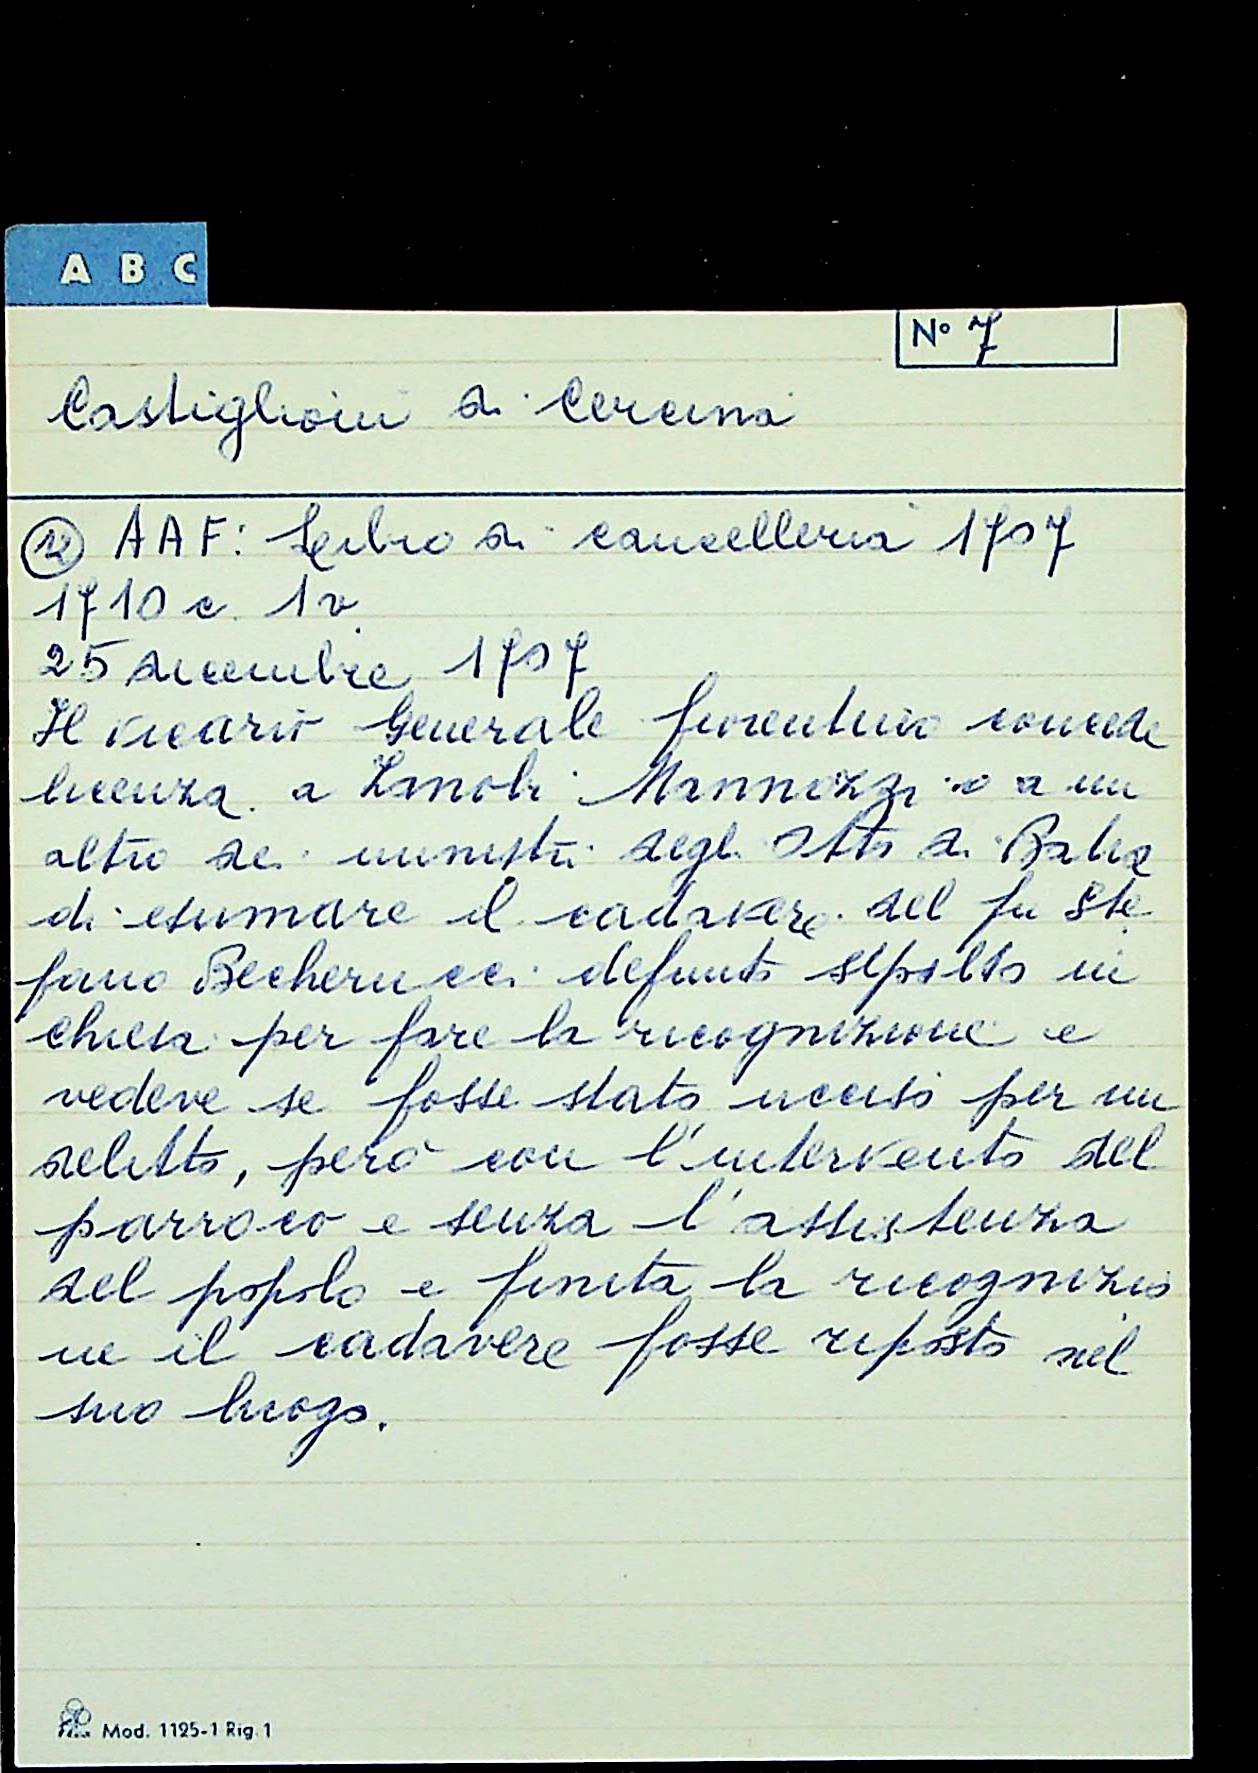 A B C
N° 7
Castiglioni di Cercina
12 AAF: Libro di cancelleria 1707
1710 c. 1v
25 dicembre 1707
Il vicario Generale fiorentino concede
licenza a Zanobi Mannozzi o a un
altro dei ministri degli Otto di Balia
di esumare il cadavere del fu Ste
fano Becherucci defunto sepolto in
chiesa per fare la ricognizione e
vedere se fosse stato ucciso per un
delitto, però con l'intervento del
parroco e senza l'assistenza
del popolo e finita la ricognizio
ne il cadavere fosse riposto nel
suo luogo.
Mod. 1125-1 Rig. 1